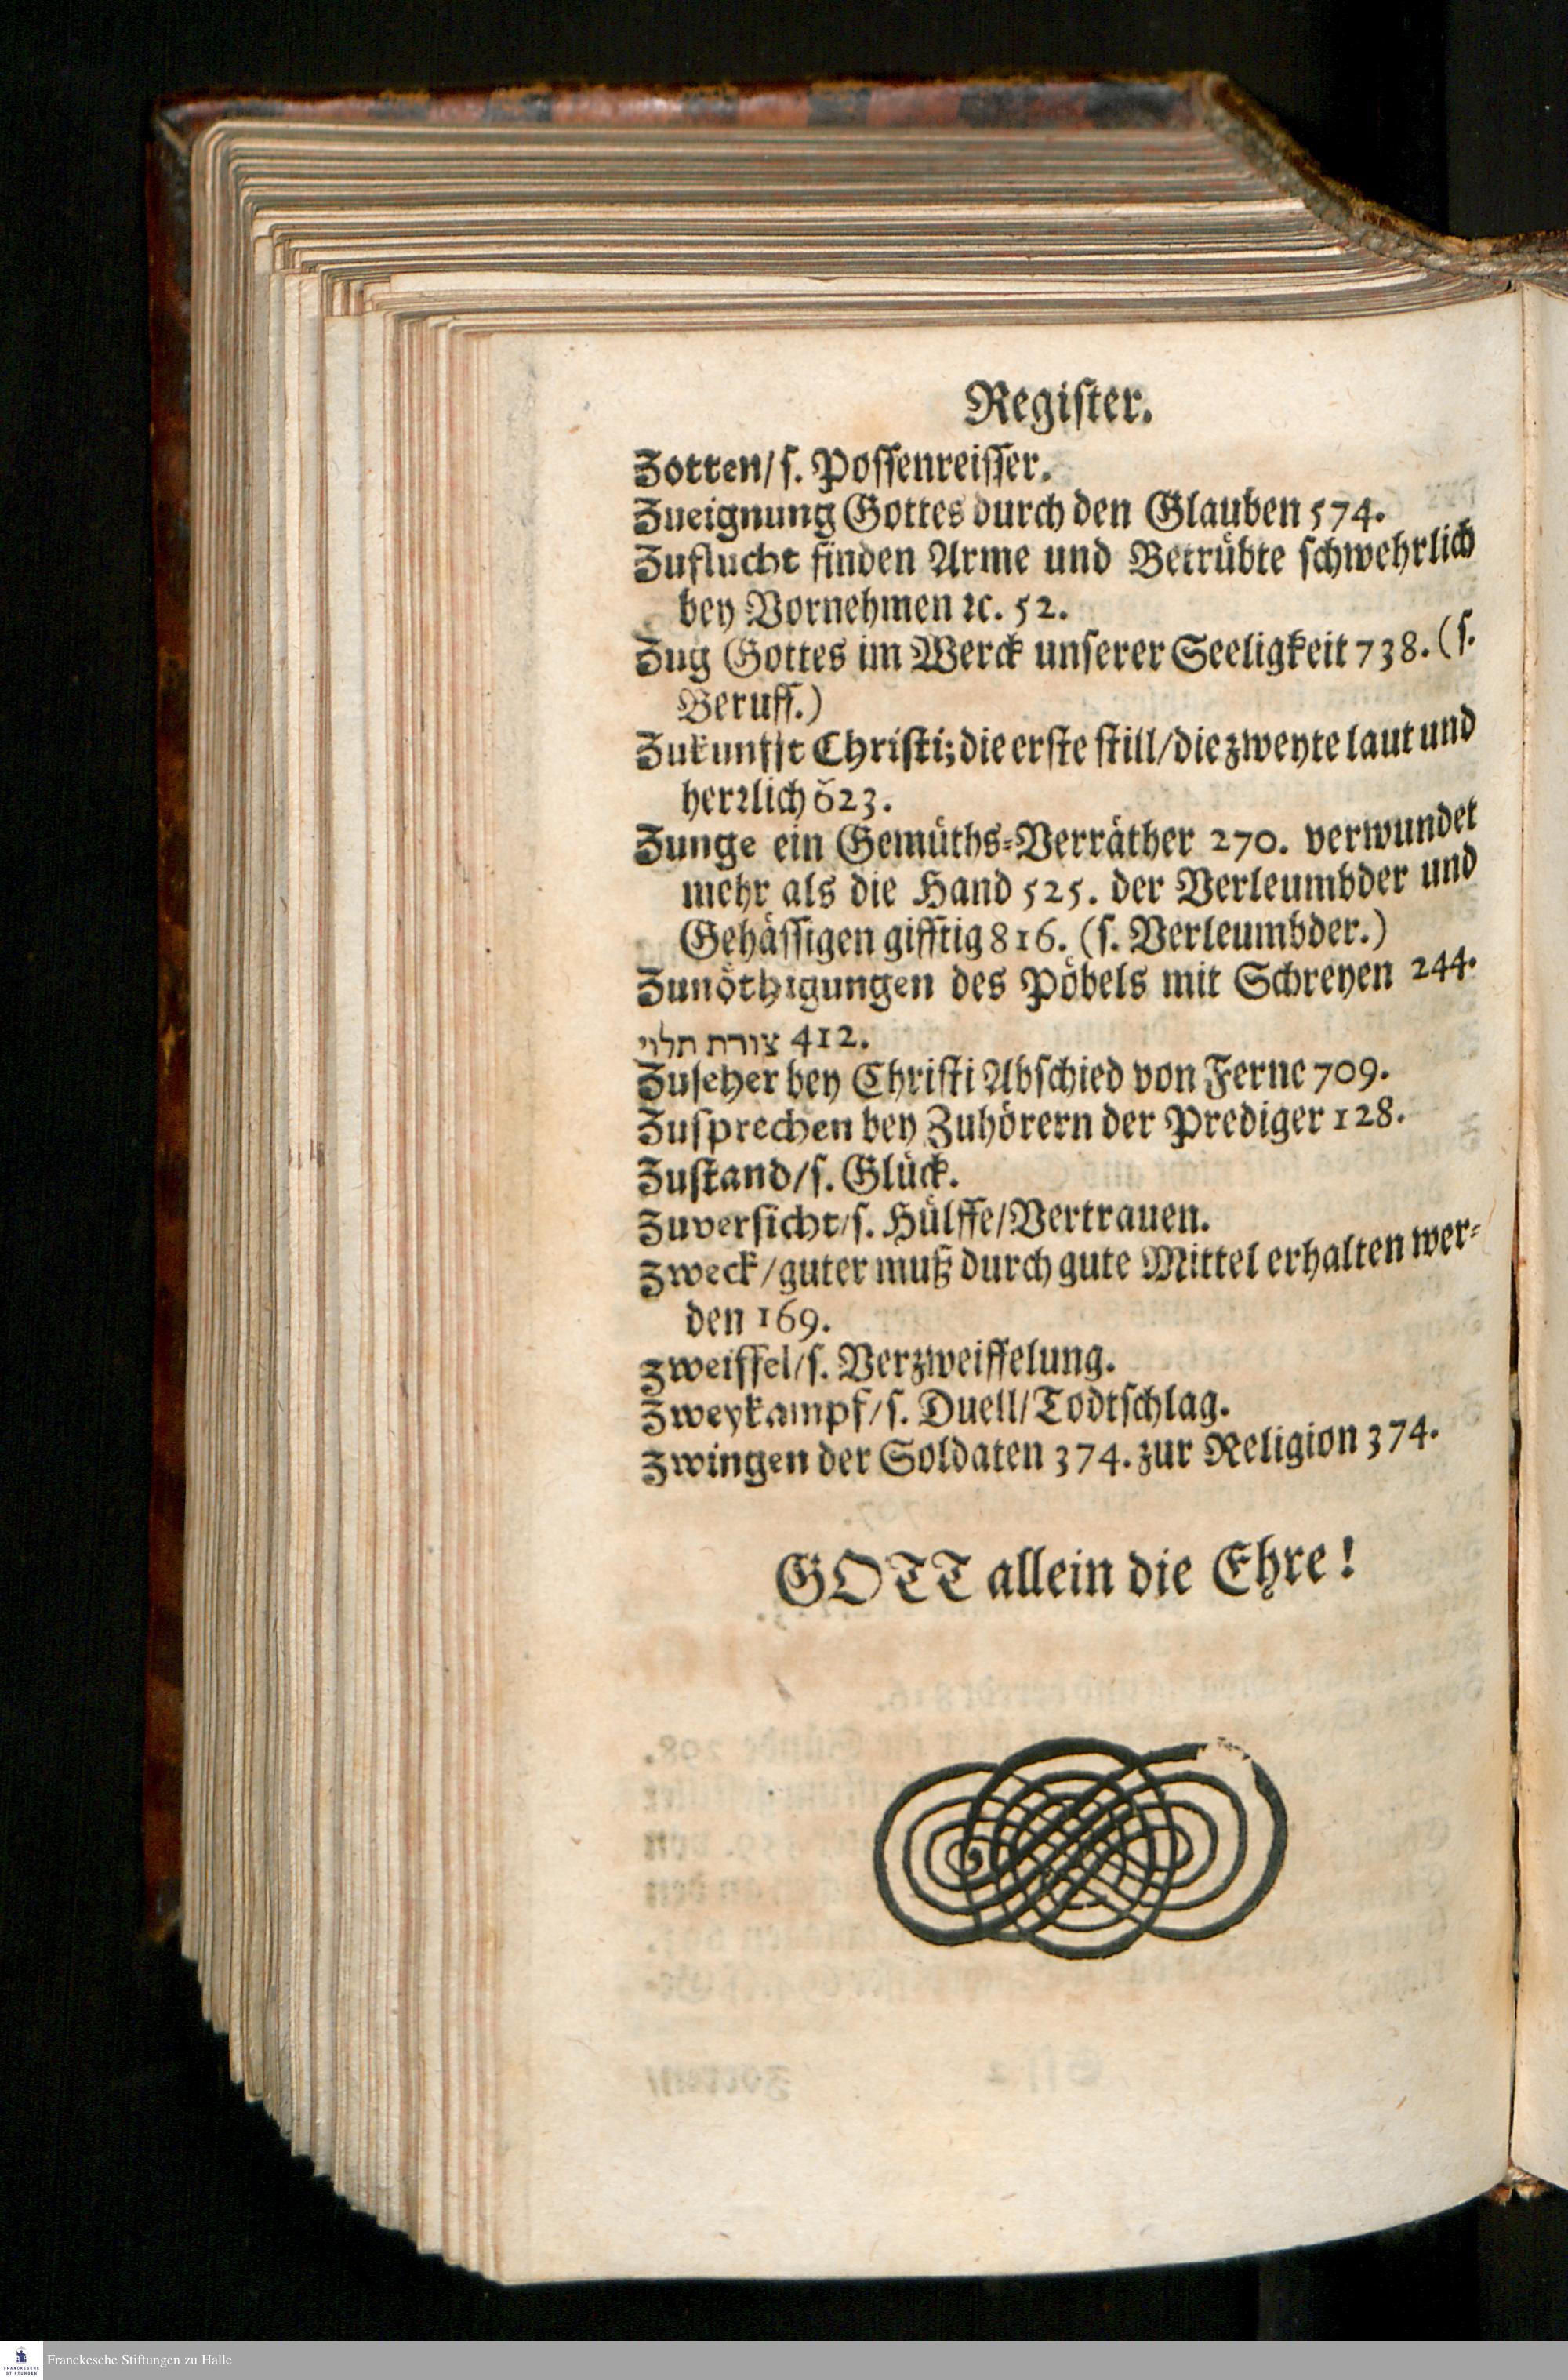 Register.
Zotten/ s. Possenreisser.
Zueignung Gottes durch den Glauben 574.
Zuflucht finden Arme und Betrübte schwehrlich
bey Vornehmen ꝛc. 52.
Zug Gottes im Werck unserer Seeligkeit 738. (s.
Beruff.)
Zukunfft Christi; die erste still/ die zweyte laut und
herꝛlich 623.
Zunge ein Gemüths-Verräther 270. verwundet
mehr als die Hand 525. der Verleumbder und
Gehässigen gifftig 816. (s. Verleumbder.)
Zunöthigungen des Pöbels mit Schreyen 244.
צורת תלוי 412.
Zuseher bey Christi Abschied von Ferne 709.
Zusprechen bey Zuhörern der Prediger 128.
Zustand/ s. Glück.
Zuversicht/ s. Hülffe/ Vertrauen.
Zweck/ guter muß durch gute Mittel erhalten wer-
den 169.
Zweiffel/ s. Verzweiffelung.
Zweykampf/ s. Duell/ Todtschlag.
Zwingen der Soldaten 374. zur Religion 374.
GOTT allein die Ehre!
FRANCKESCHE
STIFTUNGEN
Franckesche Stiftungen zu Halle